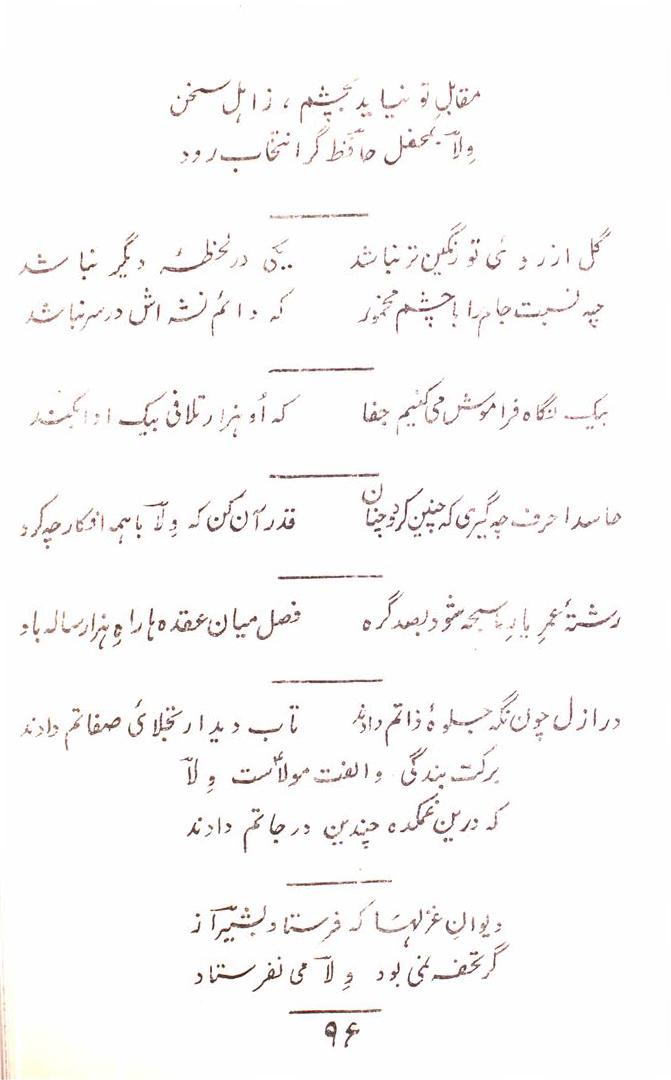 مقابلِ تو نیاید بچشم ، ز اہل سخن
وِلاؔ بمحفل حافظؔ گر انتخاب رود
گل از روئی تو رنگین تر نباشد یکی در لحظۂ دیگر نباشد
چہ نسبت جام را با چشم مخمور کہ دائم نشہ اش در سر نباشد
بیک نگاہ فراموش می کنیم جفا کہ اُو ہزار تلافی بیک ادا بکند
حاسدا حرف چہ گیری کہ چنین کرد و چنان قدر آن کن کہ وِلاؔ با ہمہ افکار چہ کرد
رشتۂ عمرِ یارِ ما سبحہ شود بصد گرہ فصل میان عقدہ ہا راہِ ہزار سالہ باد
در ازل چون نگہ جلوۂ ذاتم دادند تاب دیدار تجلائ صفاتم دادند
برکت بندگی و الفت مولاؑست وِلاؔ
کہ درین غمکدہ چندین درجاتم دادند
دیوانِ غزلہا کہ فرستاد بشیرؔ آنہ
گر تحفہ نمی بود وِلاؔ می نفرستاد
۹۶